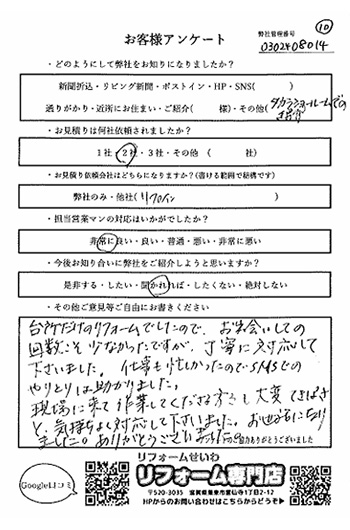 ⑩
お客様アンケート
弊社管理番号
0302408014
・どのようにして弊社をお知りになりましたか？
新聞折込・リビング新聞・ポストイン・HP・SNS( )
通りがかり・近所にお住まい・ご紹介( 様)・その他(タカラショールームでの紹介
・お見積りは何社依頼されましたか？
1社・2社・3社・その他 ( 社)
・お見積り依頼会社はどちらになりますか？(書ける範囲で結構です)
弊社のみ・他社( )
・担当営業マンの対応はいかがでしたか？
非常に良い・良い・普通・悪い・非常に悪い
・今後お知り合いに弊社をご紹介しようと思いますか？
是非する・したい・聞かれれば・したくない・絶対しない
・その他ご意見等ご自由にお書きください
台所だけのリフォームでしたので、お会いしての
回数こそ少なかったですが、丁寧に対応して
下さいました。仕事も忙しかったのでSMSでの
やりとりは助かりました。
現場に来て作業してくださる方も大変てきぱき
と、気持ちよく対応して下さいました。お世話になり
ました。ありがとうございました。
ご協力ありがとうございました
Google口コミ
リフォームせいわ
リフォーム専門店
〒520-3035 滋賀県栗東市霊仙寺1丁目2-12
HPからのお問い合わせはこちらからどうぞ